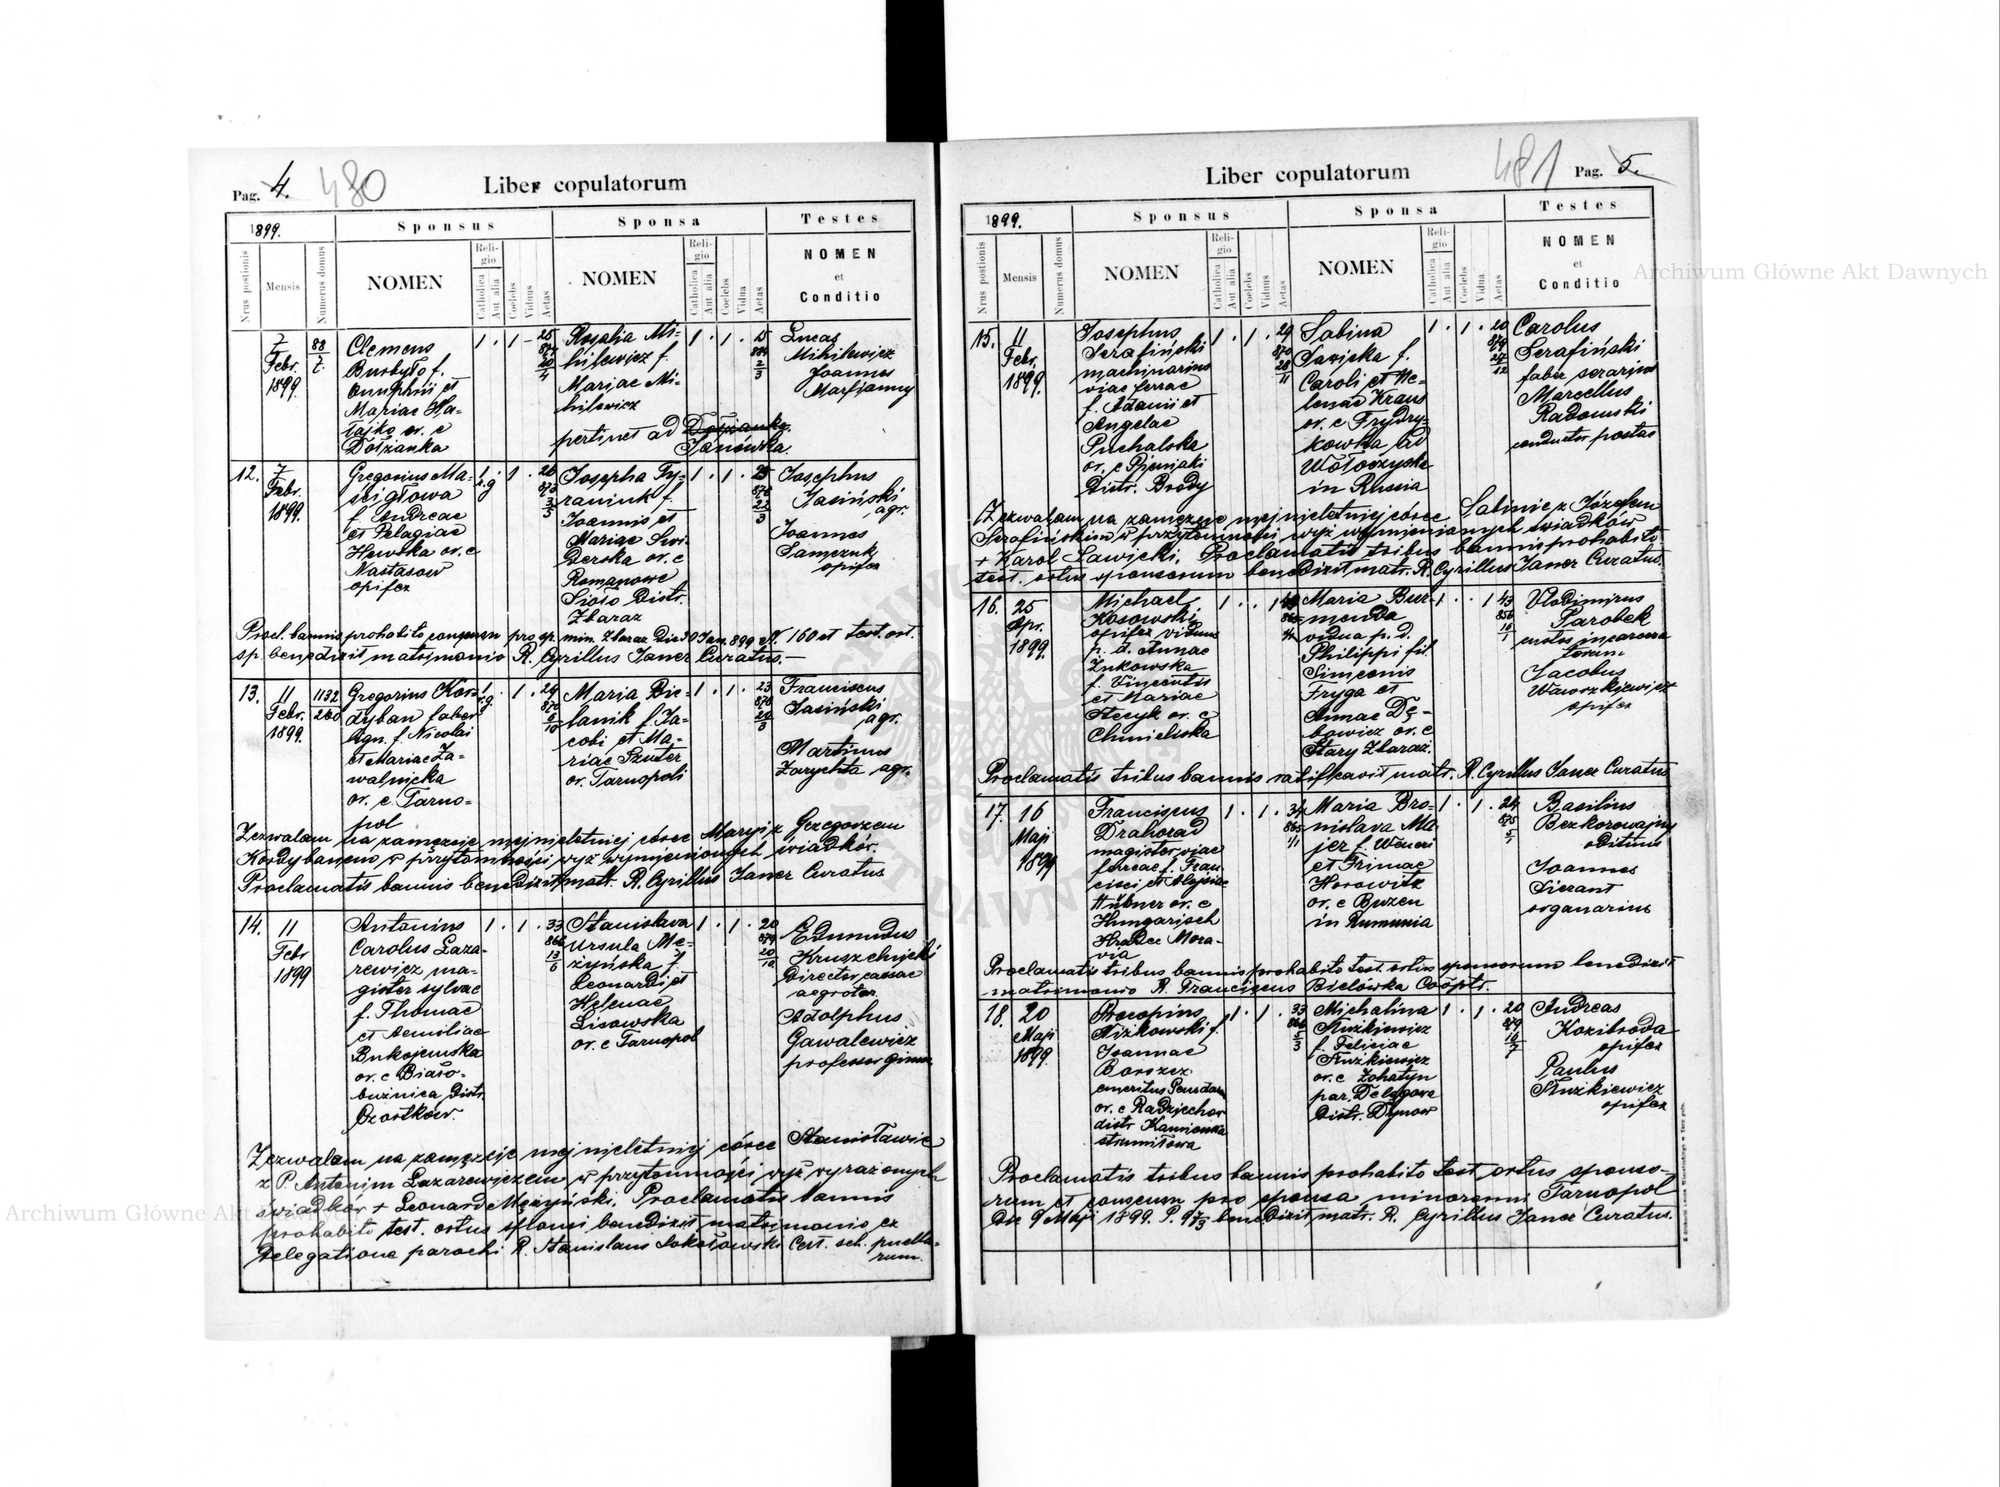 Pag. 4. 480 Liber copulatorum
1899. Sponsus Sponsa Testes
Nrus positionis Mensis Numerus domus NOMEN Religio Catholica Aut alia Coelebs Viduus Aetas NOMEN Religio Catholica Aut alia Coelebs Vidua Aetas NOMEN et Conditio
7 Febr. 1899. 88/7.
Clemens
Burbyło f.
Onuphrii et
Mariae Ha-
łajko or. e
Dołżanka
1 . 1 - 25
874
20
4
Rosalia Mi-
hilewicz f.
Mariae Mi-
hilewicz
pertinet ad Dołżanka.
Janówka.
1 . 1 . 15
884
2
3
Lucas
Mihilewicz
Joannes
12. 7 Febr. 1899.
Gregorius Ma-
śligłowa
f. Andreae
et Pelagiae
or. e
Nastasow
opifex
1 r.g . 1 . 26
873
3
3
Josepha Ty-
raniuk f.
Joannis et
Mariae Swi-
derska or. e
Romanowe
Sioło Distr.
Zbaraz
1 . 1 . 23
876
22
3
Josephus
Jasiński
agr.
Joannes
opifex
Procl. bannis prohabito consensu pro sp. min. Zbaraz die 30 Jan. 899 N. 160 et test. ort.
sp. benedixit matrimonio R. Cyrillus Janer Curatus.—
13. 11 Febr. 1899. 1132/260
Gregorius Kor-
dyban faber
lign. f. Nicolai
et Mariae Za-
walnicka
or. e. Tarno-
pol
1 r.g. . 1 . 29
870
6
10
Maria Bie-
lanik f. Ja-
cobi et Ma-
riae Szuter
or. Tarnopoli
1 . 1 . 23
876
24
3
Franciscus
Jasiński
agr.
Martinus
Zarychta agr.
Zezwalam na zamęzcie mej nieletniej córce Maryi z Grzegorzem
Kordybanem w przytomności wyż wymienionych świadków.
Proclamatis bannis benedixit matr. R. Cyrillus Janer Curatus
14. 11 Febr 1899
Antonius
Carolus Laza-
rewicz ma-
gister sylvae
f. Thomae
et Aemiliae
Bukojemska
or. e Biało-
bużnica Distr.
Czortków.
1 . 1 . 33
866
13
6
Stanislava
Ursula Mę-
żyńska f.
Leonardi et
Helenae
Lisowska
or. e Tarnopol
1 . 1 . 20
879
20
10
Edmundus
Director cassae
aegrotor.
Adolphus
Gawalewicz
professor gimn.
Zezwalam na zamęzcie mej nieletniej córce Stanisławie
z P. Antonim Lazarewiczem w przytomności wyż wyrażonych
świadków + Leonard Mężyński. Proclamatis bannis
prohabito test. ortus sponsi benedixit matrimonio ex
Delegatione parochi R. Stanislaus Sokołowski Cat. sch. puella-
rum.
Liber copulatorum 481 Pag. 5.
1899. Sponsus Sponsa Testes
Nrus positionis Mensis Numerus domus NOMEN Religio Catholica Aut alia Coelebs Viduus Aetas NOMEN Religio Catholica Aut alia Coelebs Vidua Aetas NOMEN et Conditio
15. 11 Febr. 1899.
Josephus
Serafiński
machinarius
viae ferrae
f. Adami et
Angelae
Puchalska
or. e Pieniaki
Distr. Brody
1 . 1 . 29
870
28
11
Sabina
Sawicka f.
Caroli et He-
lenae Kraus
or. e Frydry-
kowska ad
Wołoczyska
in Russia
1 . 1 . 20
879
27
12
Carolus
Serafiński
faber serarius
Marcellus
Radomski
conductor postae
Zezwalam na zamęzcie mej nieletniej córce Sabinie z Józefem
Serafińskim w przytomności wyż wymienionych świadków
+ Karol Sawicki. Proclamatis tribus bannis prohabito
test. ortus sponsorum benedixit matr. R. Cyrillus Janer Curatus.
16. 25 Apr. 1899.
Michael
Kosowski
opifex viduus
p. d. Annae
Żukowska
f. Vincentii
et Mariae
Stecyk or. e
Chmieliska
1 . . 1
Maria Bur-
menda
vidua p. d.
Philippi fil
Simeonis
Fryga et
Annae Dę-
bowicz or. e
Stary Zbaraz.
1 . . 1 43
856
10
1
Vladimirus
Parobek
Jacobus
Wawszkiewicz
opifex
Proclamatis tribus bannis ratificavit matr. R. Cyrillus Janer Curatus
17. 16 Maji 1899
Franciscus
Drahorad
magister viae
ferreae f. Fran-
cisci et Aloysiae
Hübner or. e
Hungarisch
Hradec Mora-
via
1 . 1 . 34
865
1/1
Maria Bro-
nislava Ma-
jer f.
et Irimae
Horowitz
or. e Buzeu
in Rumunia
1 . 1 . 24
875
5
1
Basilius
Bezkorowajny
Joannes
Sierant
organarius
Proclamatis tribus bannis prohabito test. ortus sponsorum benedixit
matrimonio R. Franciscus Bielówka Coöptr.
18. 20 Maji 1899.
Procopius
Niżkowski f.
Joannae
Barszcz
emeritus
or. e Radziechow
distr. Kamionka
strumiłowa
1 . 1 . 33
866
5
3
Michalina
Kuzkiewicz
f. Feliciae
Kuzkiewicz
or. e Zohatyn
par.
Distr. Dynow
1 . 1 . 20
879
10
7
Andreas
Kozibroda
opifex
Paulus
Kuzkiewicz
opifex
Proclamatis tribus bannis prohabito test. ortus sponso-
rum et consensu pro sponsa minorenni Tarnopol
die 9 Maji 1899. P. benedixit matr. R. Cyrillus Janer Curatus.
Archiwum Główne Akt Dawnych
Archiwum Główne Akt Dawnych